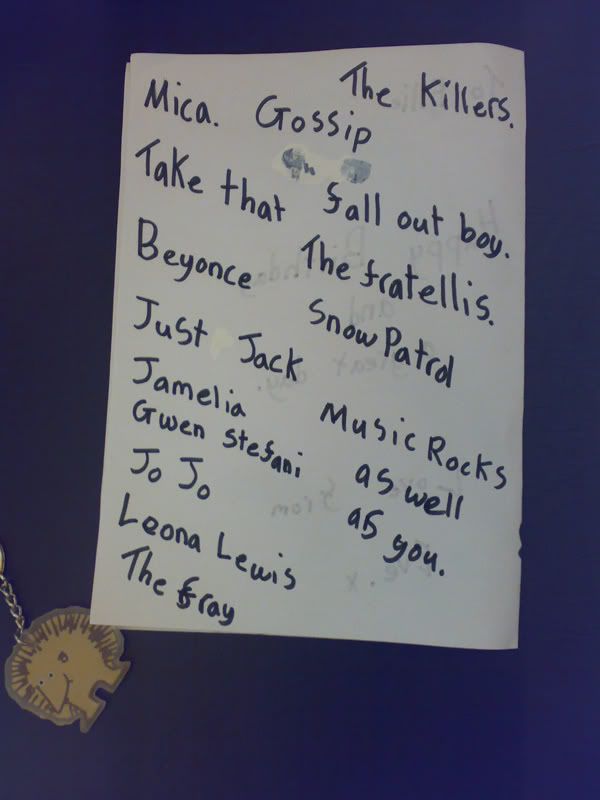 The Killers.
Mica. Gossip
Take that fall out boy.
Beyonce The fratellis.
Just Jack Snow Patrol
Jamelia
Gwen Stefani
Jo Jo
Leona Lewis
The fray
Music Rocks
as well
as you.